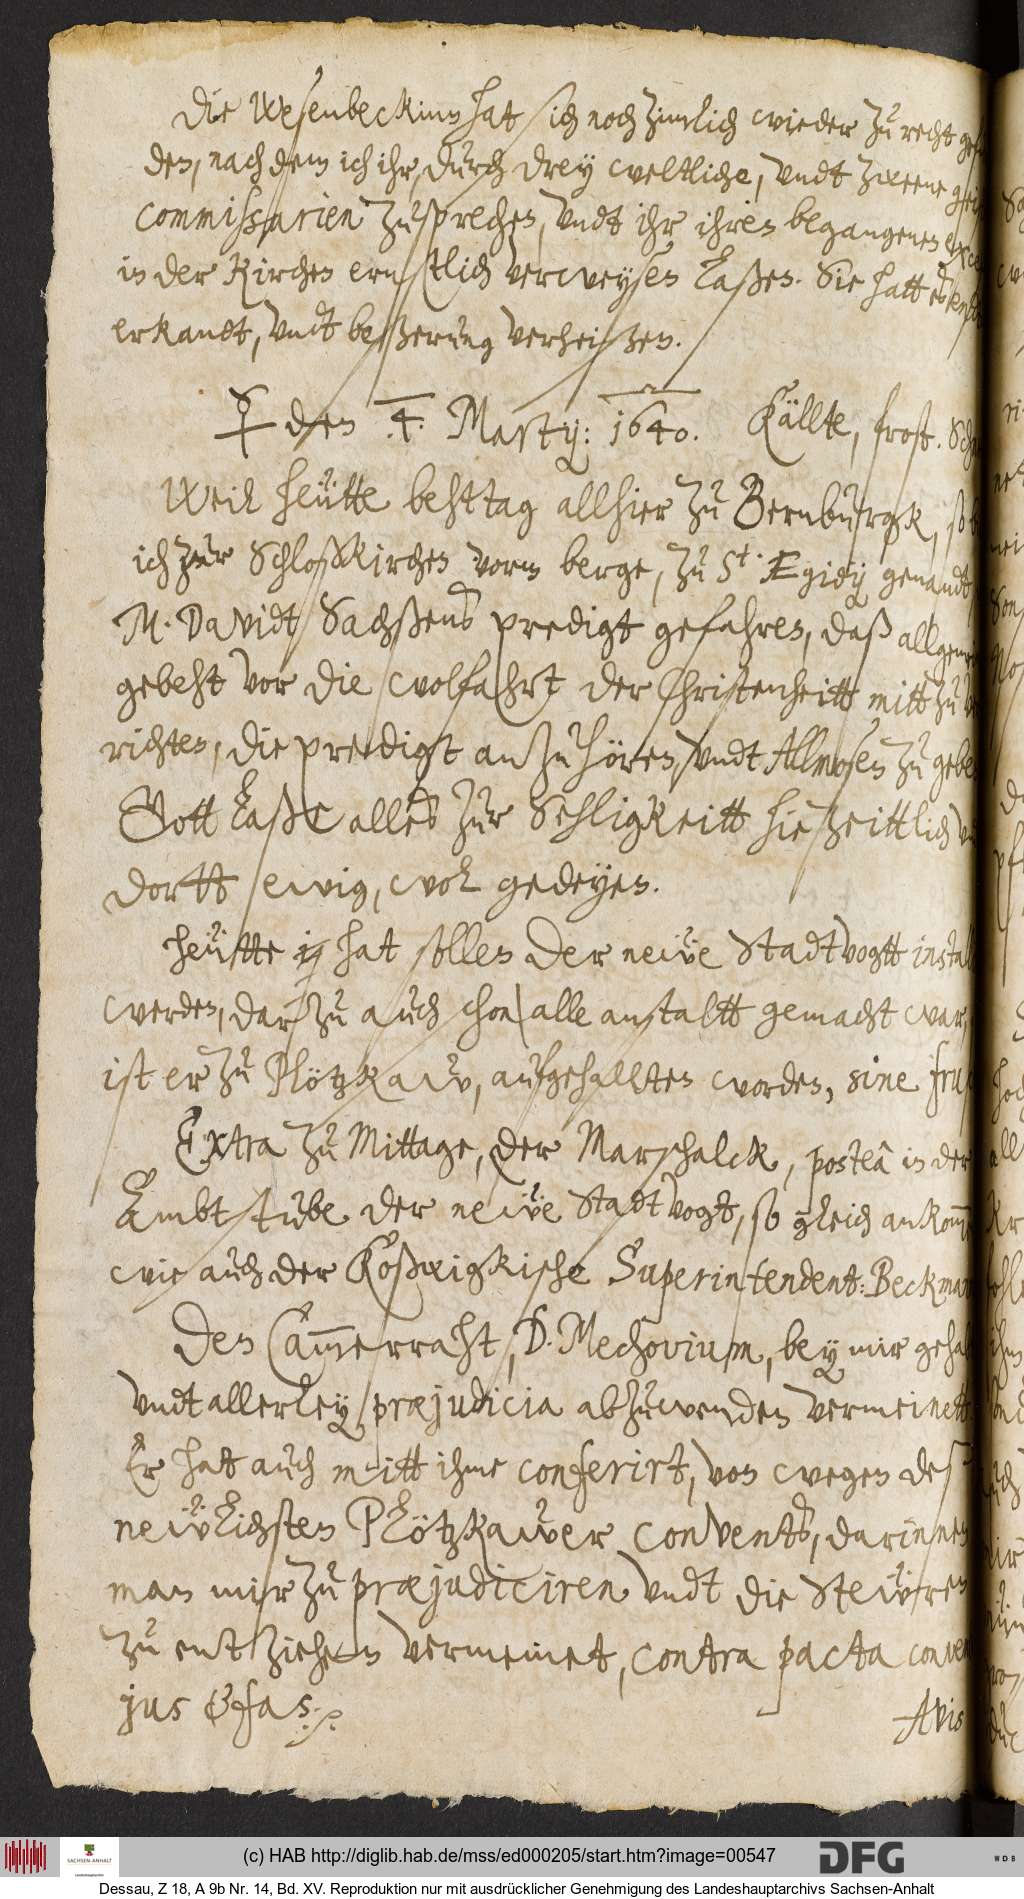 Die Wesenbeckinn hat sich noch zimlich wieder zu recht
den, nach dem ich ihr, durch drey weltliche, undt zweene
commissarien zusprechen, undt ihr ihren begangenen
in der Kirchen ernstlich verweysen laßen. Sie hatt es
erkandt, undt beßerung verheißen.
♀ den 4. Martij: 1640. Källte, frost.
Weil heütte behttag allhier zu Bernburgk,
ich zur Schloßkirchen vorm berge, zu St. Ægidij genandt,
M. Davidt Sachßens predigt gefahren, daß
gebeht vor die wolfahrt der Christenheitt mitt zu
richten, die predigt anzuhören, undt Allmosen zu
Gott laße alles zur Sehligkeitt hie zeittlich
dortt ewig, wol gedeyen.
Heütte hat sollen der neẅe Stadtvogtt
werden, darzu auch schon alle anstaltt gemacht war,
ist er zu Plötzkaw, aufgehallten worden, sine
Extra zu Mittage, der Marschalck, posteà in der
Ambtstube der neẅe Stadtvogt, so gleich
wie auch der Koßwigkische Superintendent: Beckman
Den Cammerraht, D. Mechovium, bey mir
undt allerley præjudicia abzuwenden vermeinett.
Er hat auch mitt ihme conferirt, von wegen des
neẅlichsten Plötzkawer convents, darinnen
man mir zu præjudiciren undt die Steẅren
zu entziehen vermeinet, contra pacta
jus & fas.
Avis
(c) HAB http://diglib.hab.de/mss/ed000205/start.htm?image=00547
SACHSEN-ANHALT
Landeshauptarchiv
DFG
WDB
Dessau, Z 18, A 9b Nr. 14, Bd. XV. Reproduktion nur mit ausdrücklicher Genehmigung des Landeshauptarchivs Sachsen-Anhalt